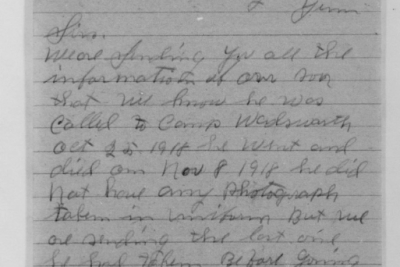 Sir.
We are sending you all the
information of our son
that we know he was
called to Camp Wadsworth
Oct 25 1918 he went and
died on Nov 8 1918 he did
not have any photograph
taken in uniform But we
are sending the last one
he had taken Before going